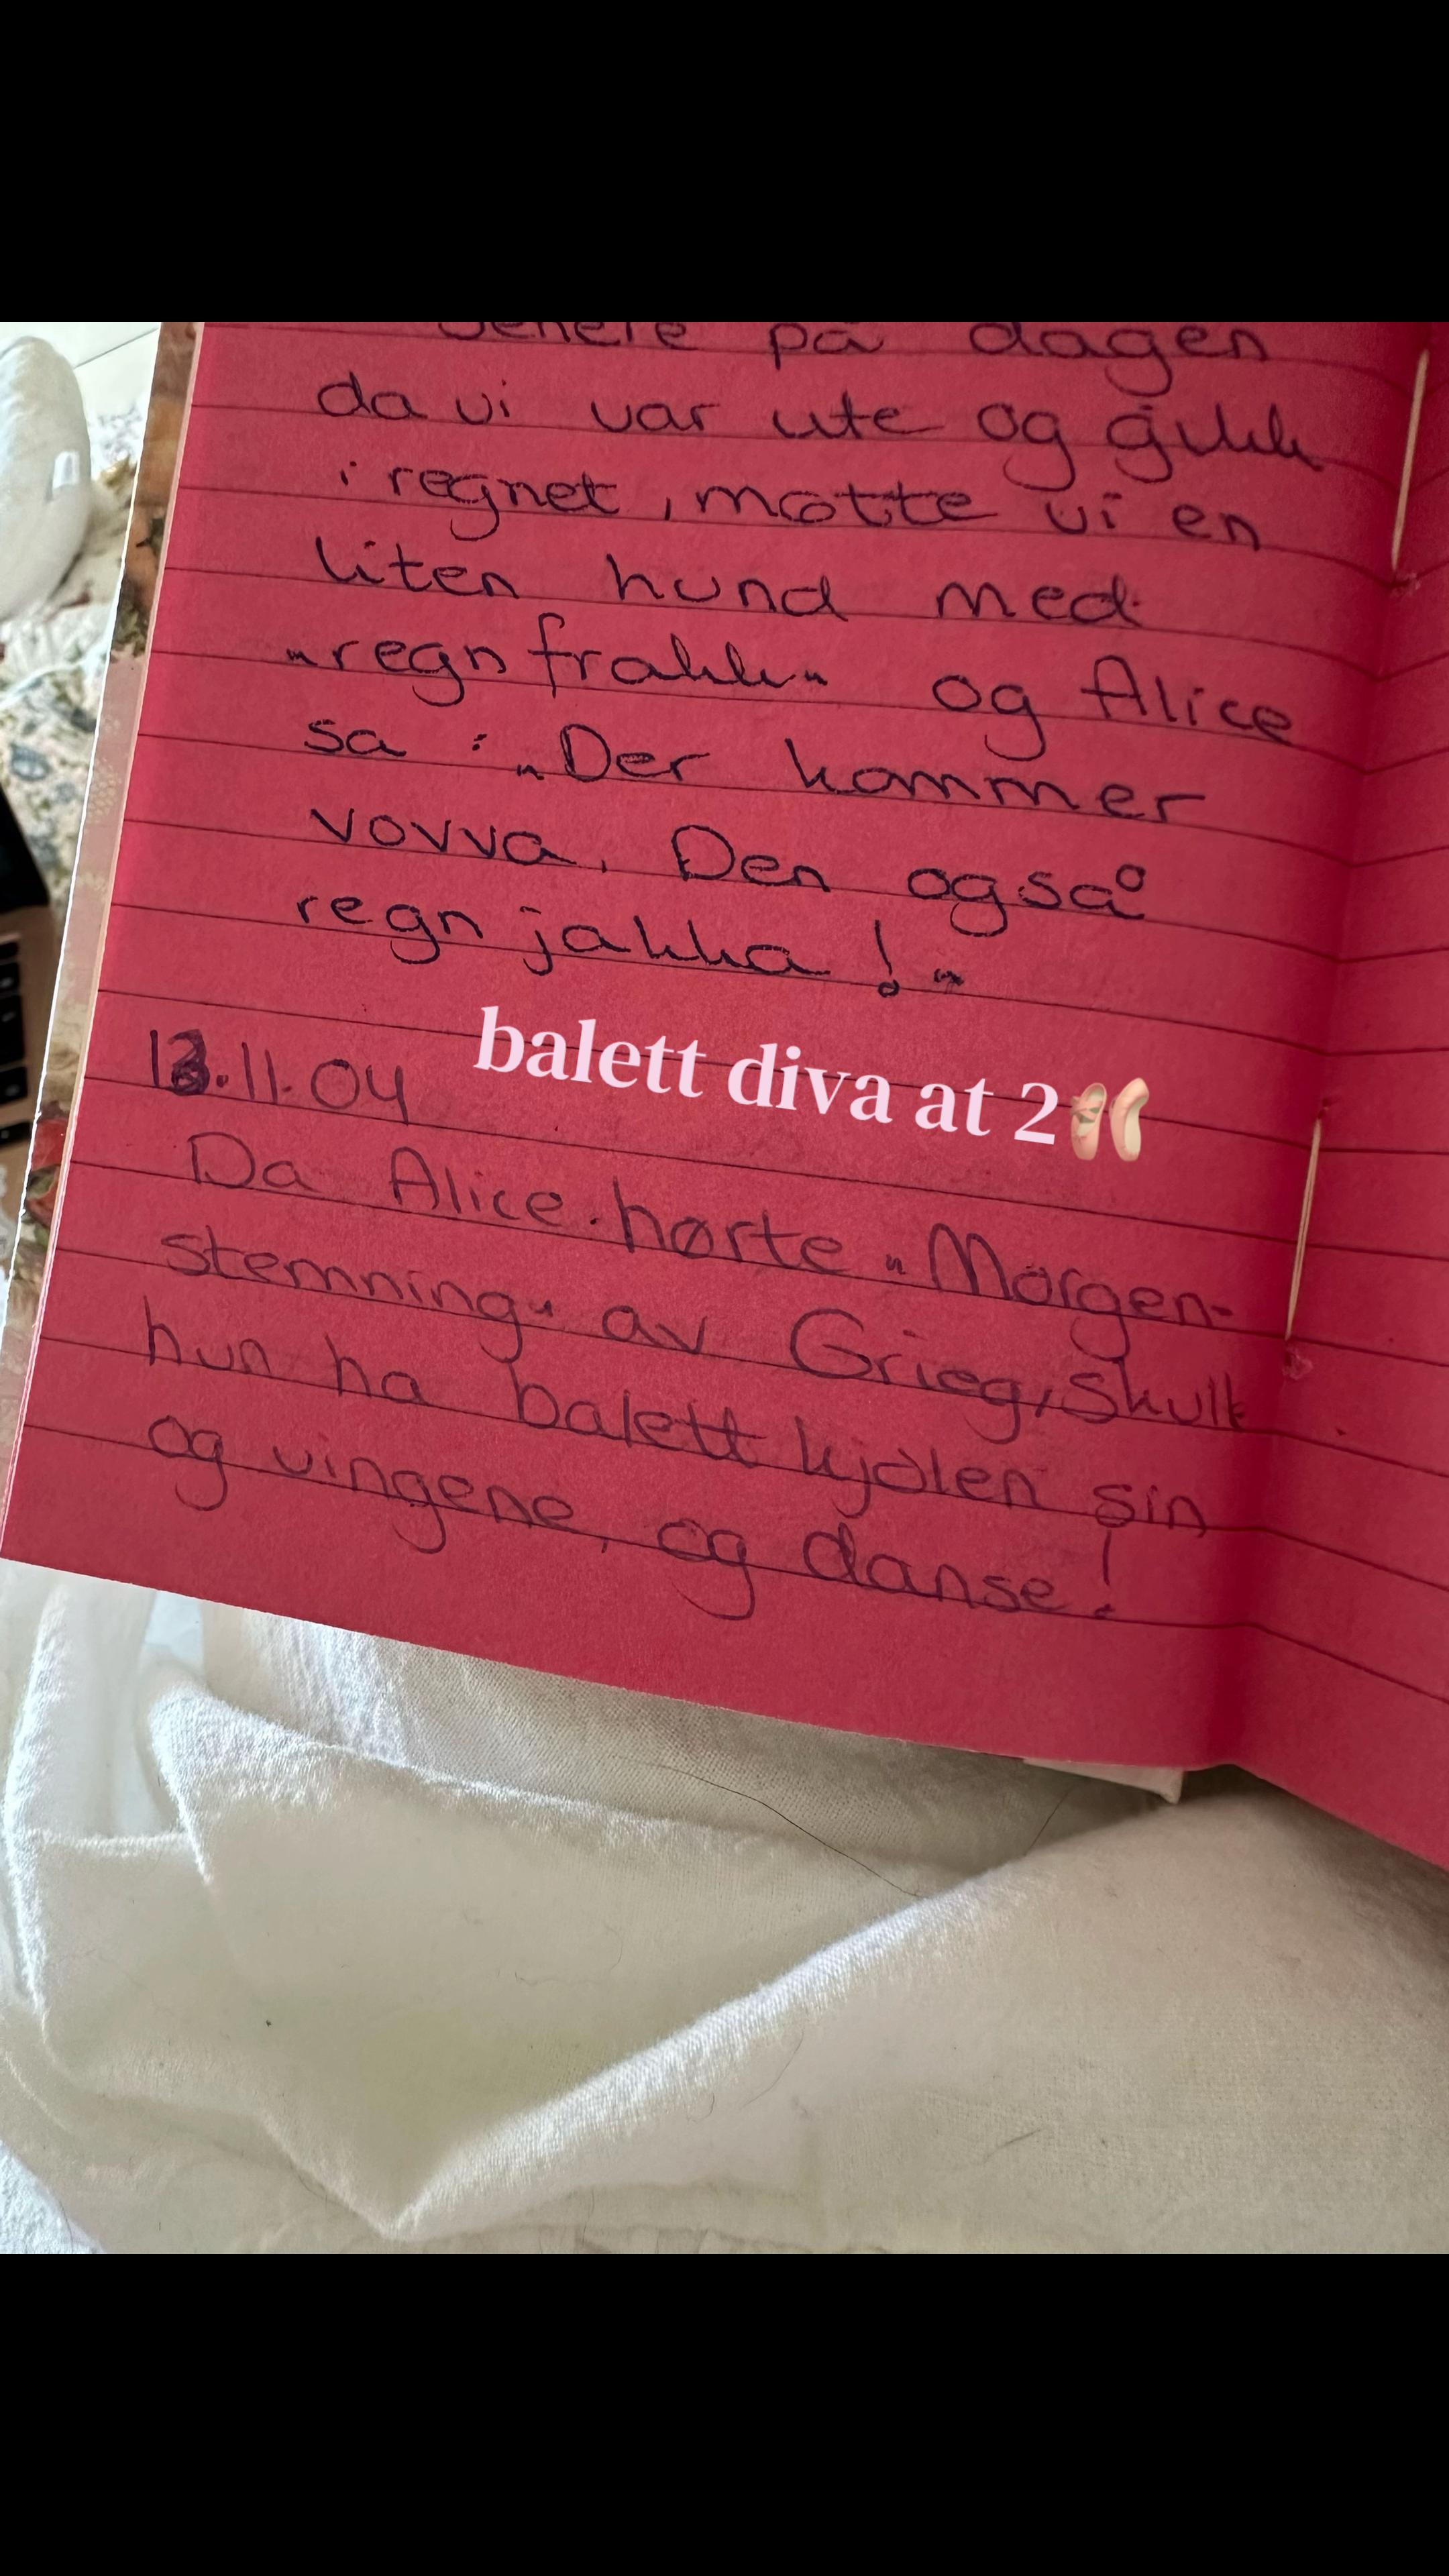 Senere på dagen
da vi var ute og gikk
i regnet, møtte vi en
liten hund med
"regnfrakk" og Alice
sa: "Der kommer
vovva. Den også
regnjakka!"
balett diva at 2🩰
13.11.04
Da Alice hørte "Morgen-
stemning" av Grieg, skulle
hun ha balettkjolen sin
og vingene, og danse!